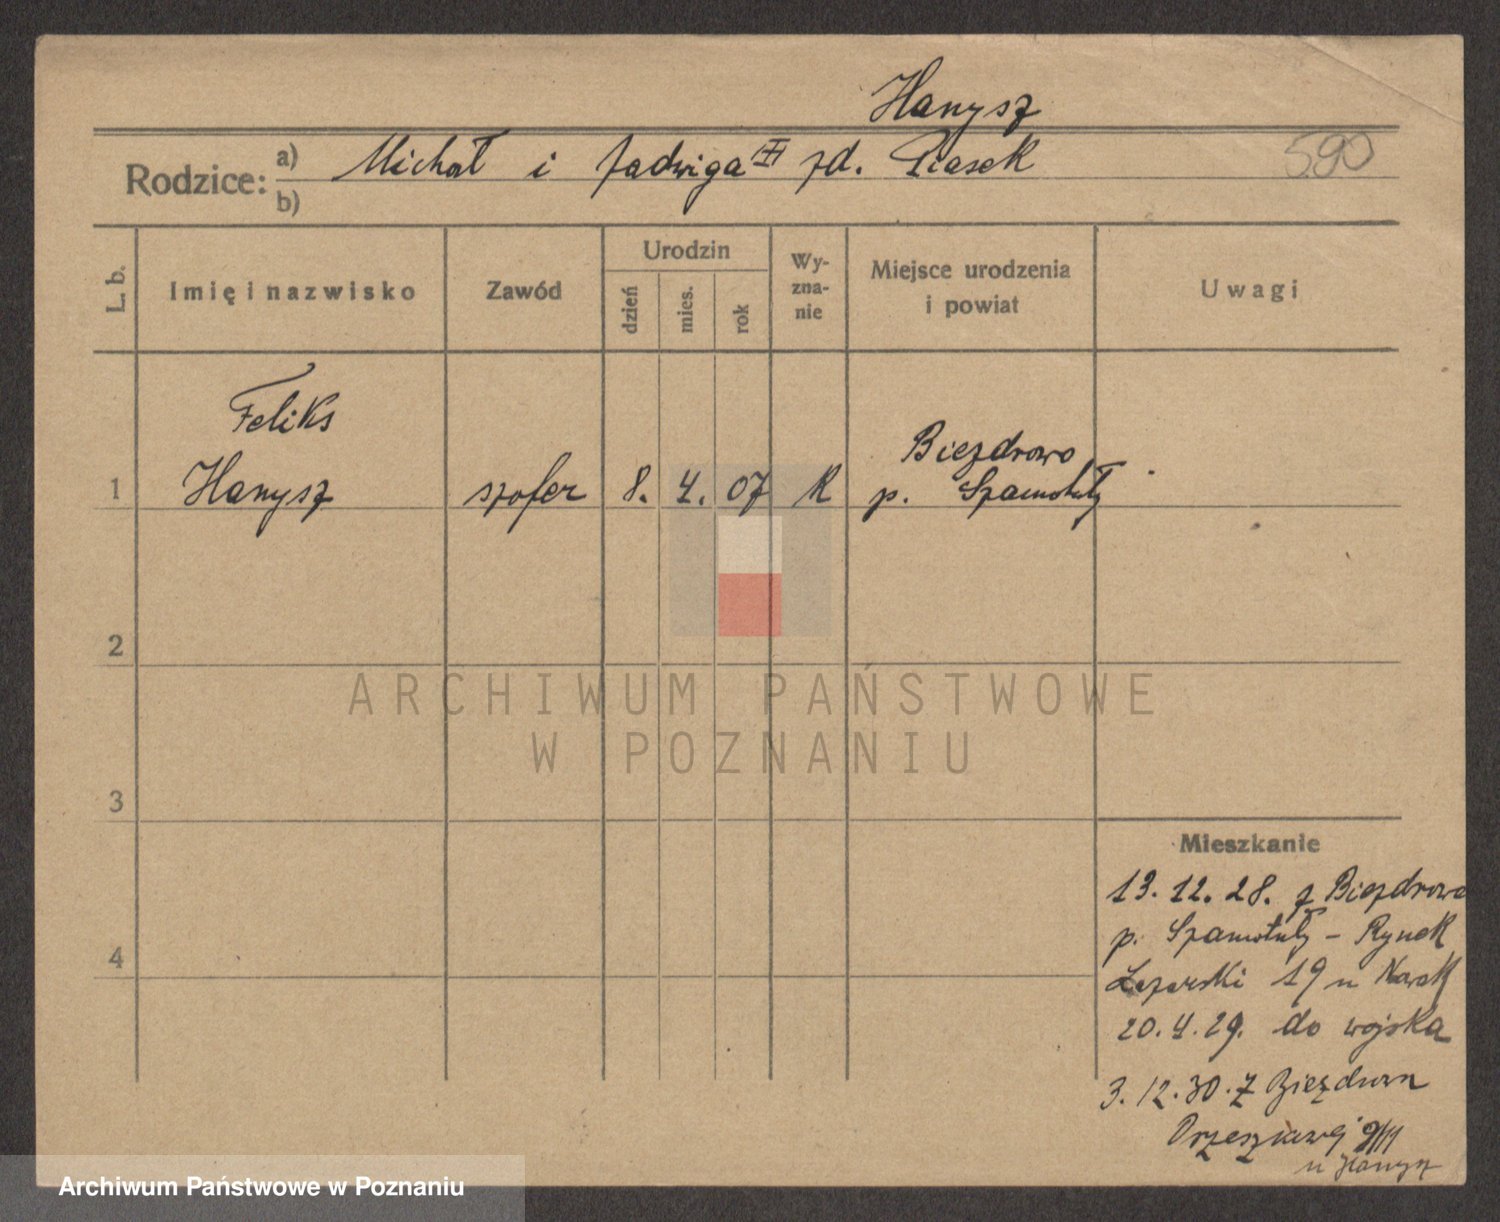 Hanysz
Rodzice: a) Michał i Jadwiga zd. Piasek 590
b)
L. b. Imię i nazwisko Zawód Urodzin dzień mies. rok Wy-zna-nie Miejsce urodzenia i powiat Uwagi
Feliks
1 Hanysz szofer 8. 4. 07 K Biezdrowo
p. Szamotuły
2
3
4
Mieszkanie
13. 12. 28. z Biezdrowa
p. Szamotuły - Rynek
Łazarski 19 u Nowak
20. 4. 29. do wojska
3. 12. 30. z Biezdrowa
Orzeszkowej 9/11
u Hanysz
ARCHIWUM PAŃSTWOWE
W POZNANIU
Archiwum Państwowe w Poznaniu